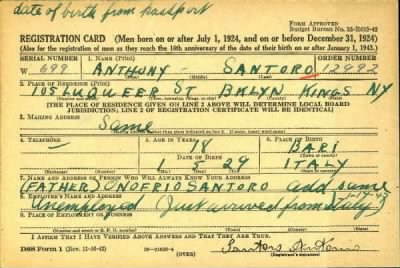 date of birth from passport
FORM APPROVED
Budget Bureau No. 33-R012-42
REGISTRATION CARD (Men born on or after July 1, 1924, and on or before December 31, 1924)
(Also for the registration of men as they reach the 18th anniversary of the date of their birth on or after January 1, 1943.)
SERIAL NUMBER 1. NAME (Print) ORDER NUMBER
W 699 ANTHONY - SANTORO 12892
(First) (Middle) (Last)
2. PLACE OF RESIDENCE (Print)
105 LUQUEER ST BKLYN KINGS NY
[THE PLACE OF RESIDENCE GIVEN ON LINE 2 ABOVE WILL DETERMINE LOCAL BOARD
JURISDICTION; LINE 2 OF REGISTRATION CERTIFICATE WILL BE IDENTICAL]
3. MAILING ADDRESS
Same
4. TELEPHONE 5. AGE IN YEARS 6. PLACE OF BIRTH
18 BARI
DATE OF BIRTH
1 5 29 ITALY
7. NAME AND ADDRESS OF PERSON WHO WILL ALWAYS KNOW YOUR ADDRESS
(FATHER) ONOFRIO SANTORO add same
8. EMPLOYER'S NAME AND ADDRESS
Unemployed (Just arrived from Italy)
9. PLACE OF EMPLOYMENT OR BUSINESS
I AFFIRM THAT I HAVE VERIFIED ABOVE ANSWERS AND THAT THEY ARE TRUE.
DSS Form 1 (Rev. 11-16-42) (OVER)
(Registrant's signature)